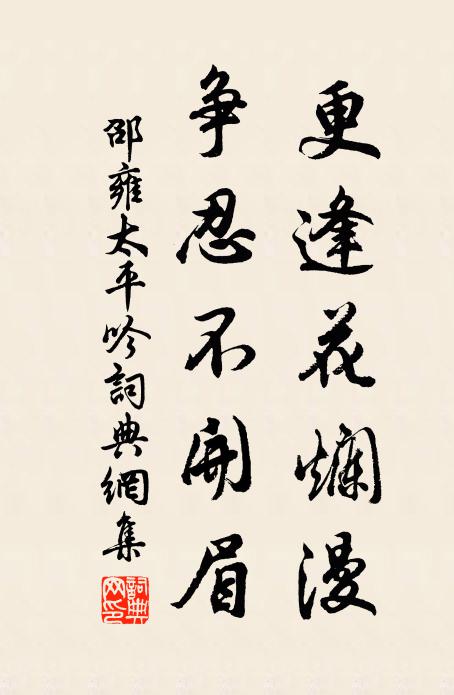 更逢花爛漫
争忍不開眉
邵雍太平吟詞典網集
詞典
网印